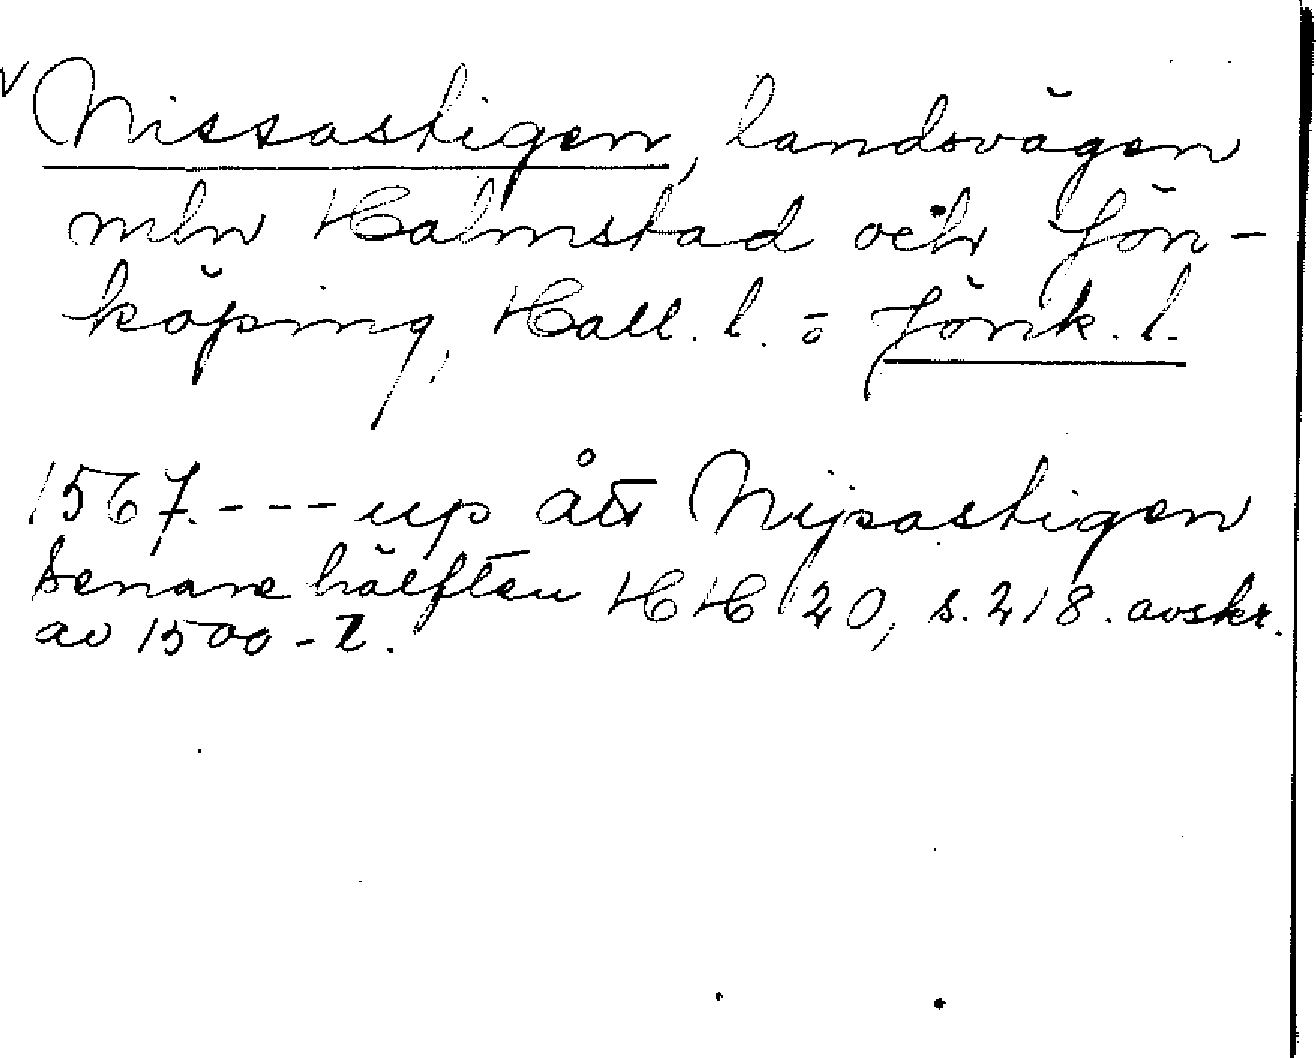 v Nissastigen, landsvägen
mln Halmstad och Jön-
köping, Hall. l. o Jönk. l.
1567. --- up ått Nijsastigen
Senare hälften HH 20, s. 218. avskr.
av 1500-t.